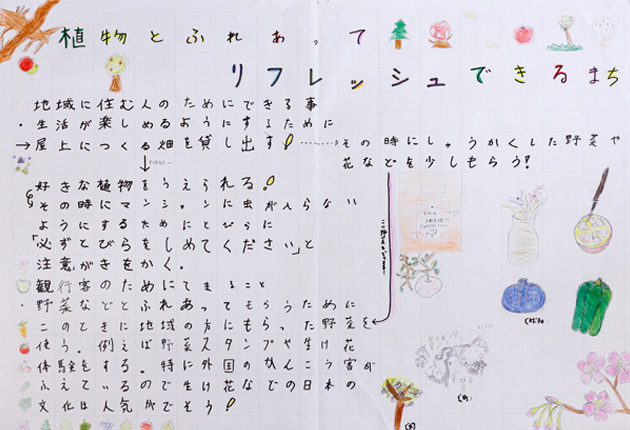 植物とふれあって
リフレッシュできるまち
地域に住む人のためにできる事
・生活が楽しめるようにするために
→屋上につくる畑を貸し出す!┄┄→その時にしゅうかくした野菜や
花などを少しもらう!
好きな植物をうえられる!
その時にマンションに虫が入らない
ようにするためにとびらに
「必ずとびらをしめてください」と
注意がきをかく。
観行客のためにできること
・野菜などとふれあってもらうために
このときに地域の方にもらった野菜を
使う。例えば野菜スタンプや生け花
体験をする。特に外国のかんこう客が
ふえているので生け花などの日本の
文化は人気がでそう!